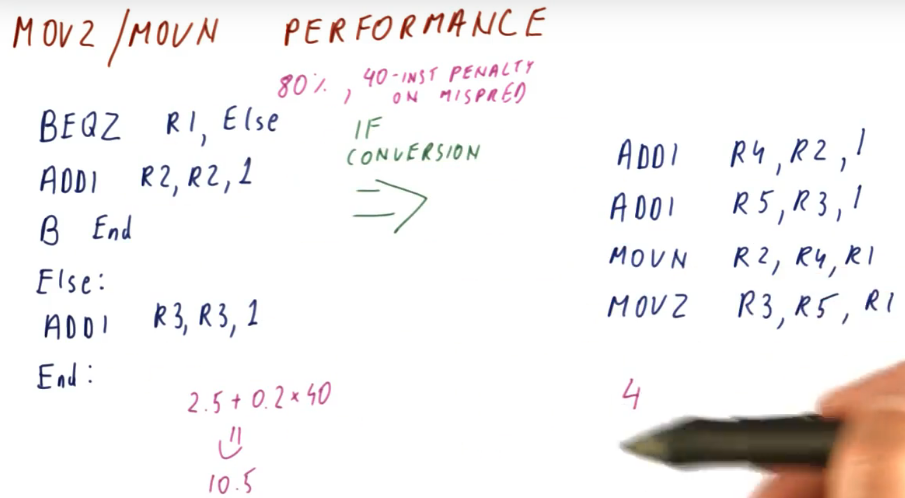 MOVZ/MOVN PERFORMANCE
80%, 40-INST PENALTY
ON MISPRED
BEQZ R1, Else
ADDI R2,R2,1
B End
Else:
ADDI R3,R3,1
End:
IF
CONVERSION
⇒
ADDI R4,R2,1
ADDI R5,R3,1
MOVN R2,R4,R1
MOVZ R3,R5,R1
2.5+0.2×40
=
10.5
4